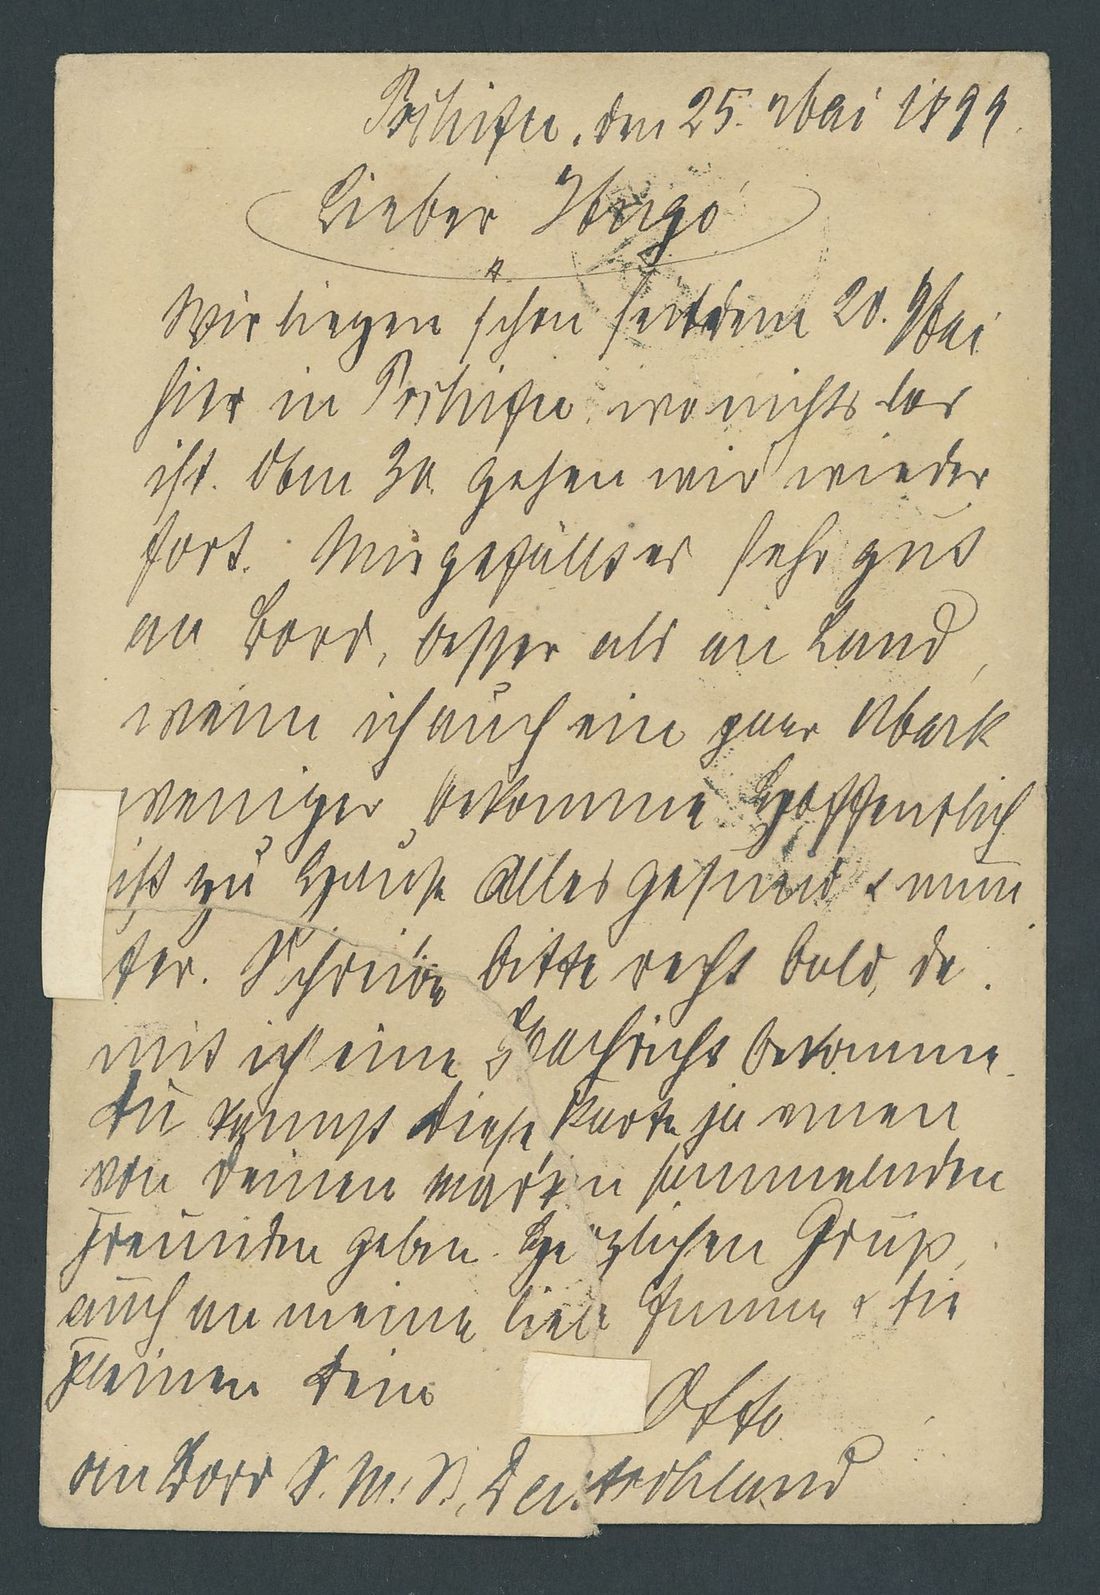 den 25. Mai 1899.
Lieber Hugo
Wir liegen schon seit dem 20. Mai
hier in wo nichts los
ist. Am 30. gehen wir wieder
fort. Mir gefällt es sehr gut
an Bord, besser als an Land,
wenn ich auch ein paar Mark
weniger bekomme Hoffentlich
ist zu Hause Alles gesund & mun
ter. Schreibe bitte recht bald, da
mit ich eine Nachricht bekomme.
Du kannst diese Karte ja einen
von Deinen marken sammelnden
Freunden geben. Herzlichen Gruß,
auch an meine liebe & die
Kleinen Dein Otto
an Bord S. M. S. Deutschland